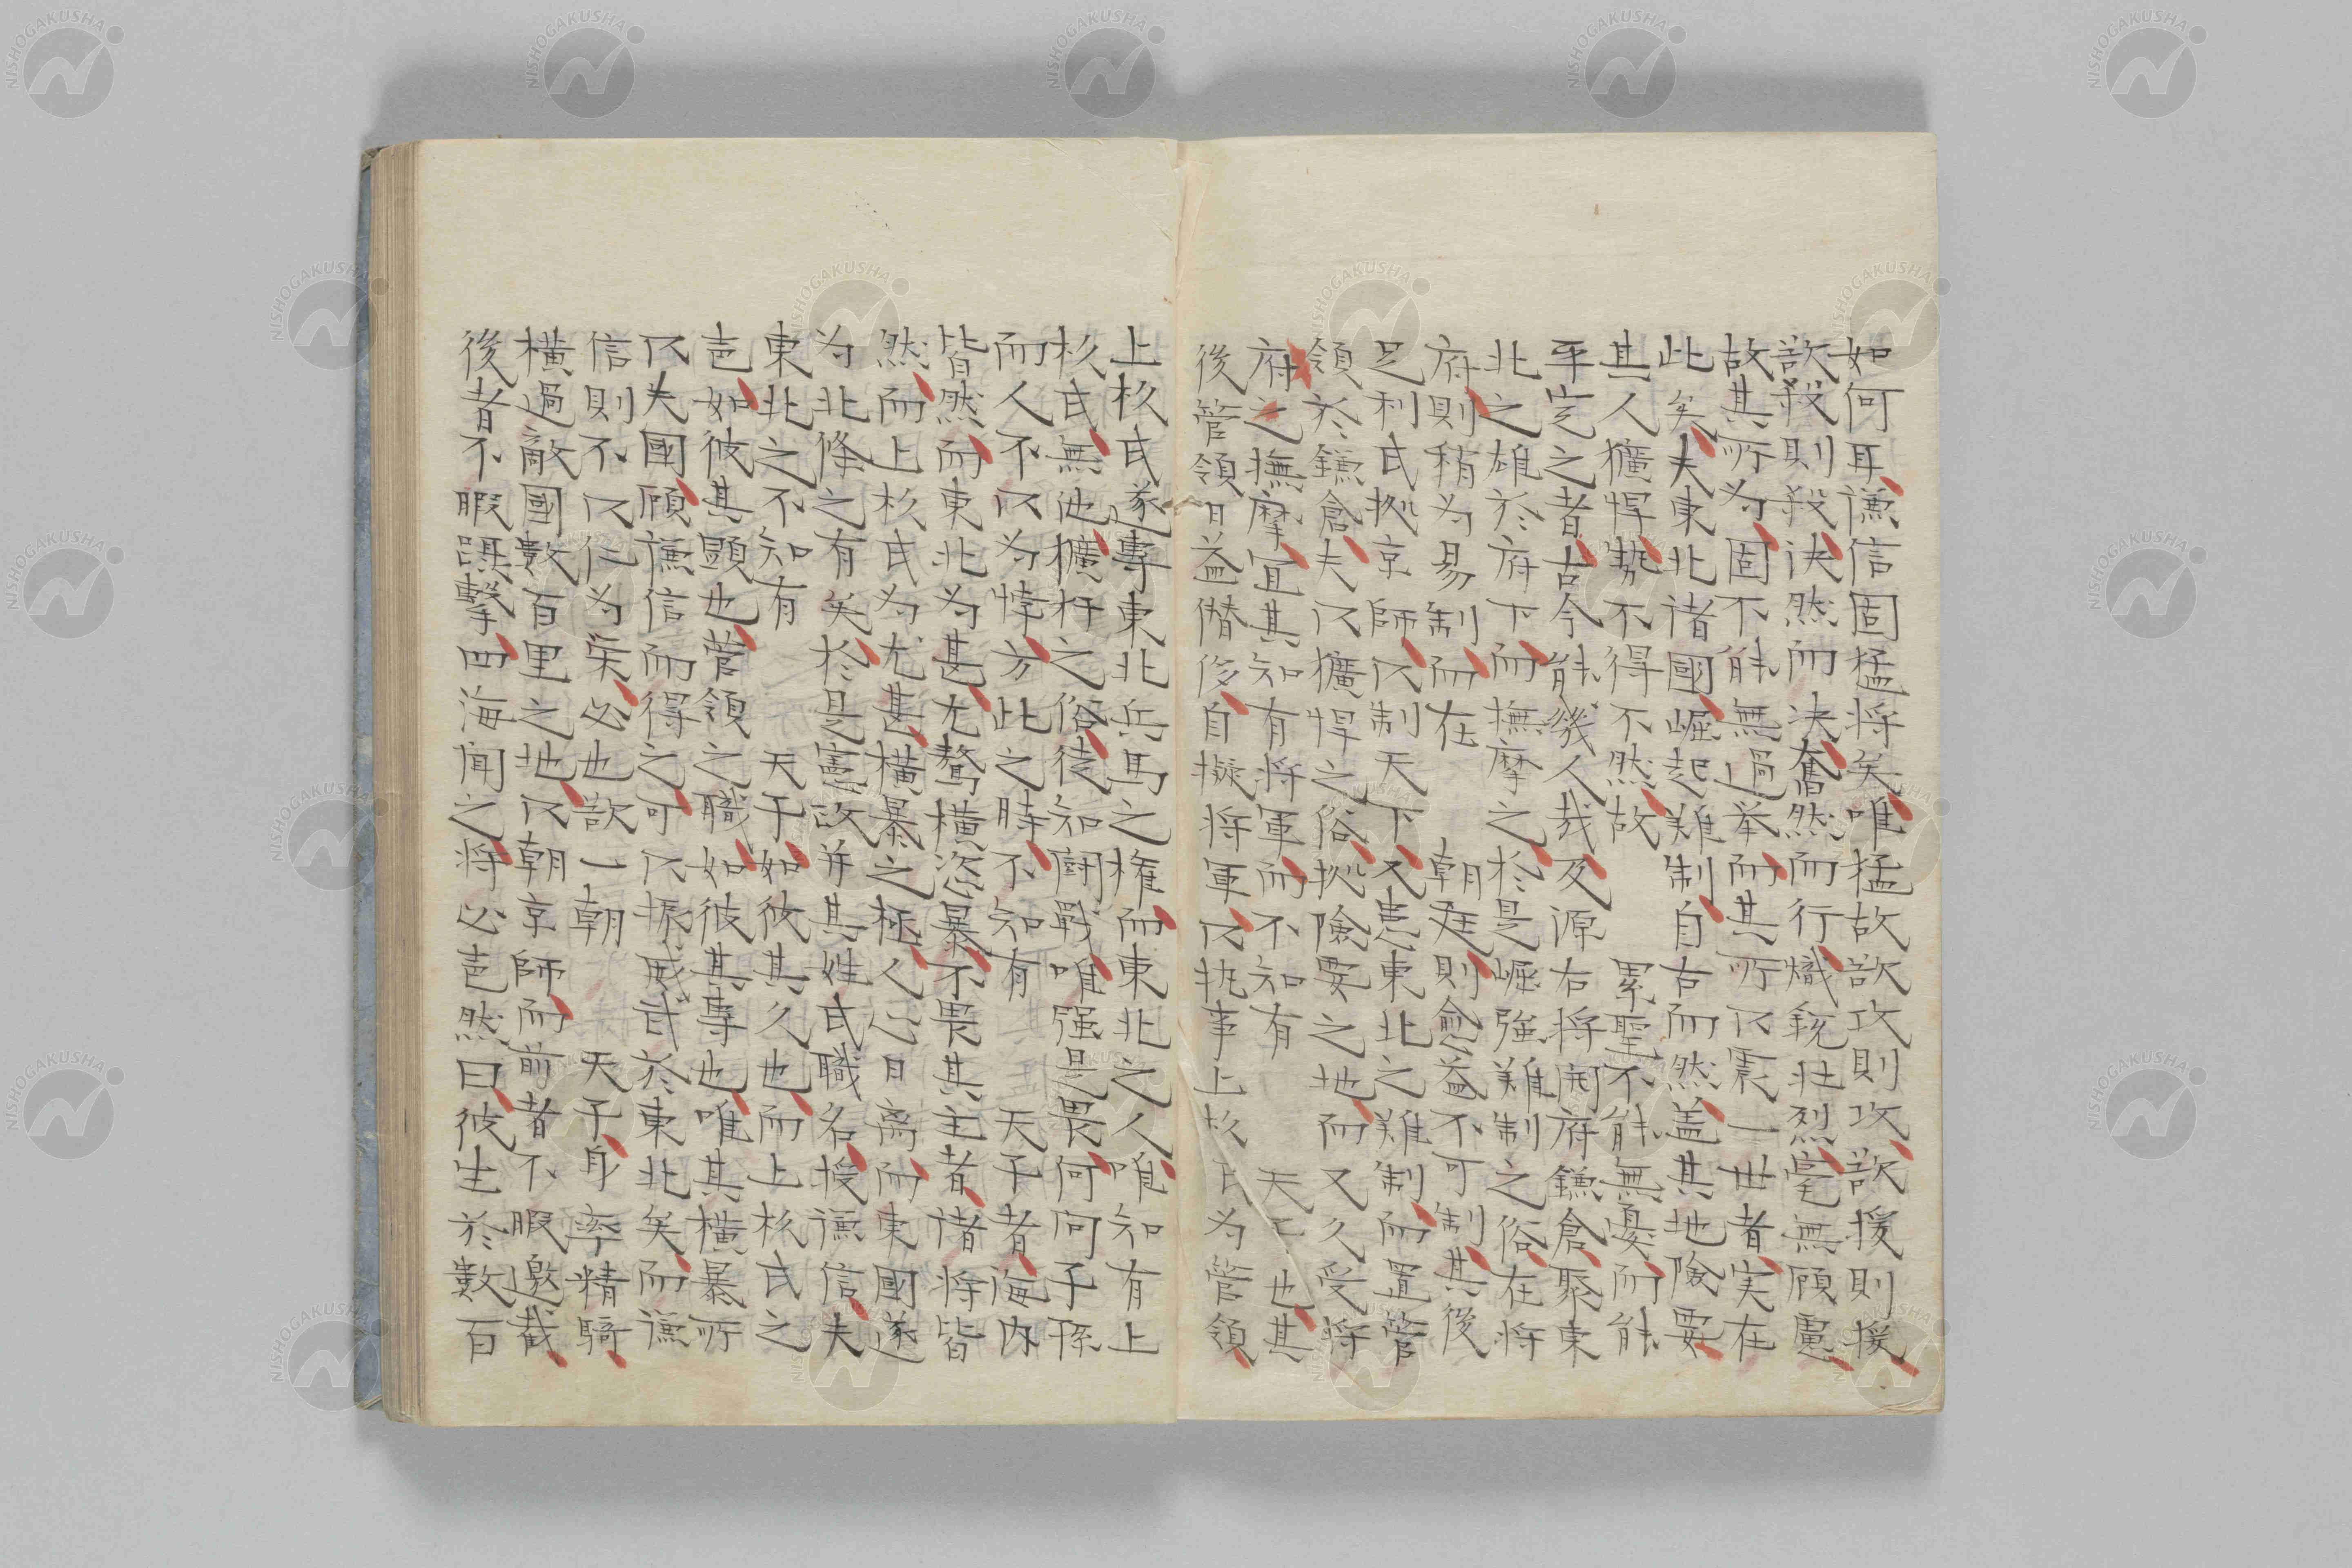 如何耳謙信固猛将矣唯猛故欲攻則攻欲援則援
欲殺則殺决然而决奮然而行熾鋭壮烈毫無顧慮
故其所为固不能無過挙而其所以震一世者実在
此矣夫東北诸國崛起難制自古而然盖其地险要
其人獷悍勢不得不然故　累聖不能無憂而能
平定之者古今能幾人哉及源右将開府鎌倉聚東
北之雄於府下而撫摩之於是崛強難制之俗在将
府則稍为易制而在　朝廷則愈益不可制其後
足利氏拠京師以制天下又患東北之難制而置管
領於鎌倉夫以獷悍之俗拠險要之地而又久受将
府之撫摩宜其知有将軍而不知有　天子也其
後管領日益僭侈自擬将軍以执事上杉氏为管領
上杉氏遂專東北兵馬之権而東北之人唯知有上
杉氏無他獷悍之俗徒知闘戰唯强是畏何问子孫
而人不以为悖方此之時不知有　天子者海内
皆然而東北为甚尤驁横恣暴不畏其主者诸将皆
然而上杉氏为尤甚横暴之極人心日离而東國遂
为北條之有矣於是憲政并其姓氏職名授謙信夫
東北之不知有　天子如彼其久也而上杉氏之
芭如彼其顕也管領之職如彼其專也唯其横暴所
以失國顧謙信而得之可以振威武於東北矣而謙
信則不以仁为矣必也欲一朝　天子身率精騎
横過敵國數百里之地以朝京師而前者不暇邀截
後者不暇蹑擊四海闻之将必芭然曰彼生於數百